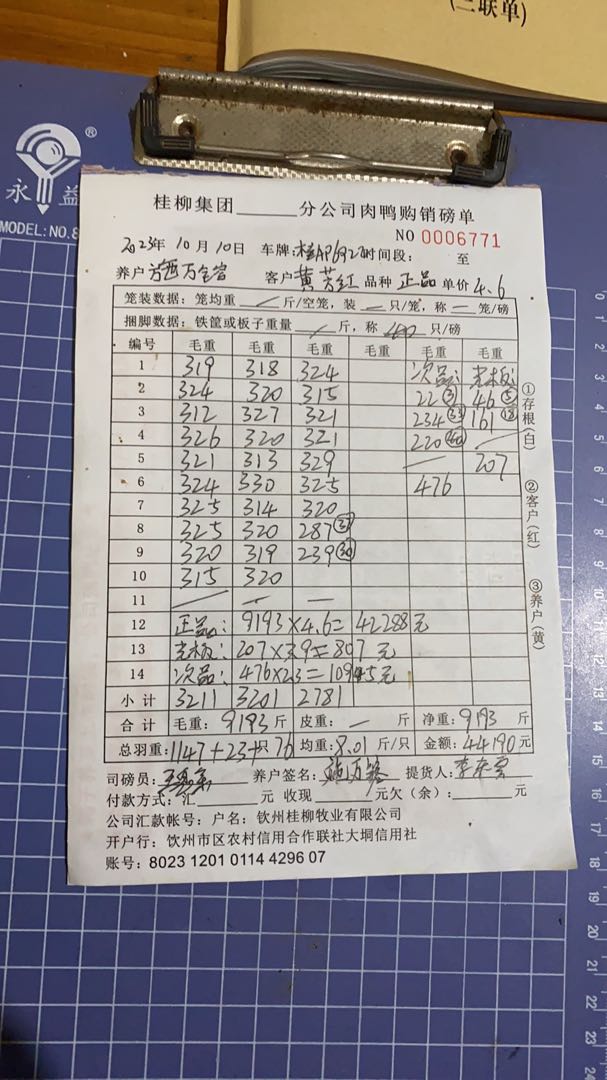 (三联单)
®
永 益
MODEL: NO.8
桂柳集团______分公司肉鸭购销磅单
NO 0006771
2023年 10月 10日 车牌: 时间段: 至
养户 客户 黄芳红 品种 正品 单价 4.6
笼装数据: 笼均重 / 斤/空笼, 装 / 只/笼, 称 一 笼/磅
捆脚数据: 铁筐或板子重量 / 斤, 称 400 只/磅
编号 毛重 毛重 毛重 毛重 毛重 毛重
1 319 318 324 次品: 毛板:
2 324 320 315 22③ 46⑤
3 312 327 321 234 161⑱
4 326 320 321 220 /
5 321 313 329 一 207
6 324 330 325 476
7 325 314 320
8 325 320 287
9 320 319 239㉚
10 315 320
11 / 一 一
12 正品: 9193×4.6= 42288元
13 207×3.9= 807 元
14 次品: 476×2.3= 元
小计 3211 3201 2781
合计 毛重: 9193 斤 皮重: 一 斤 净重: 9193 斤
总羽重: 1147+23+只 76 均重: 8.01 斤/只 金额: 44190元
司磅员: 养户签名: 提货人:
付款方式: 汇______元 收现______元欠(余):______元
公司汇款帐号: 户名: 钦州桂柳牧业有限公司
开户行: 钦州市区农村信用合作联社大垌信用社
账号: 8023 1201 0114 4296 07
①存根(白)
②客户(红)
③养户(黄)
0
1
2
3
4
5
6
7
8
9
10
11
12
13
14
15
16
17
18
19
20
21
22
23
24